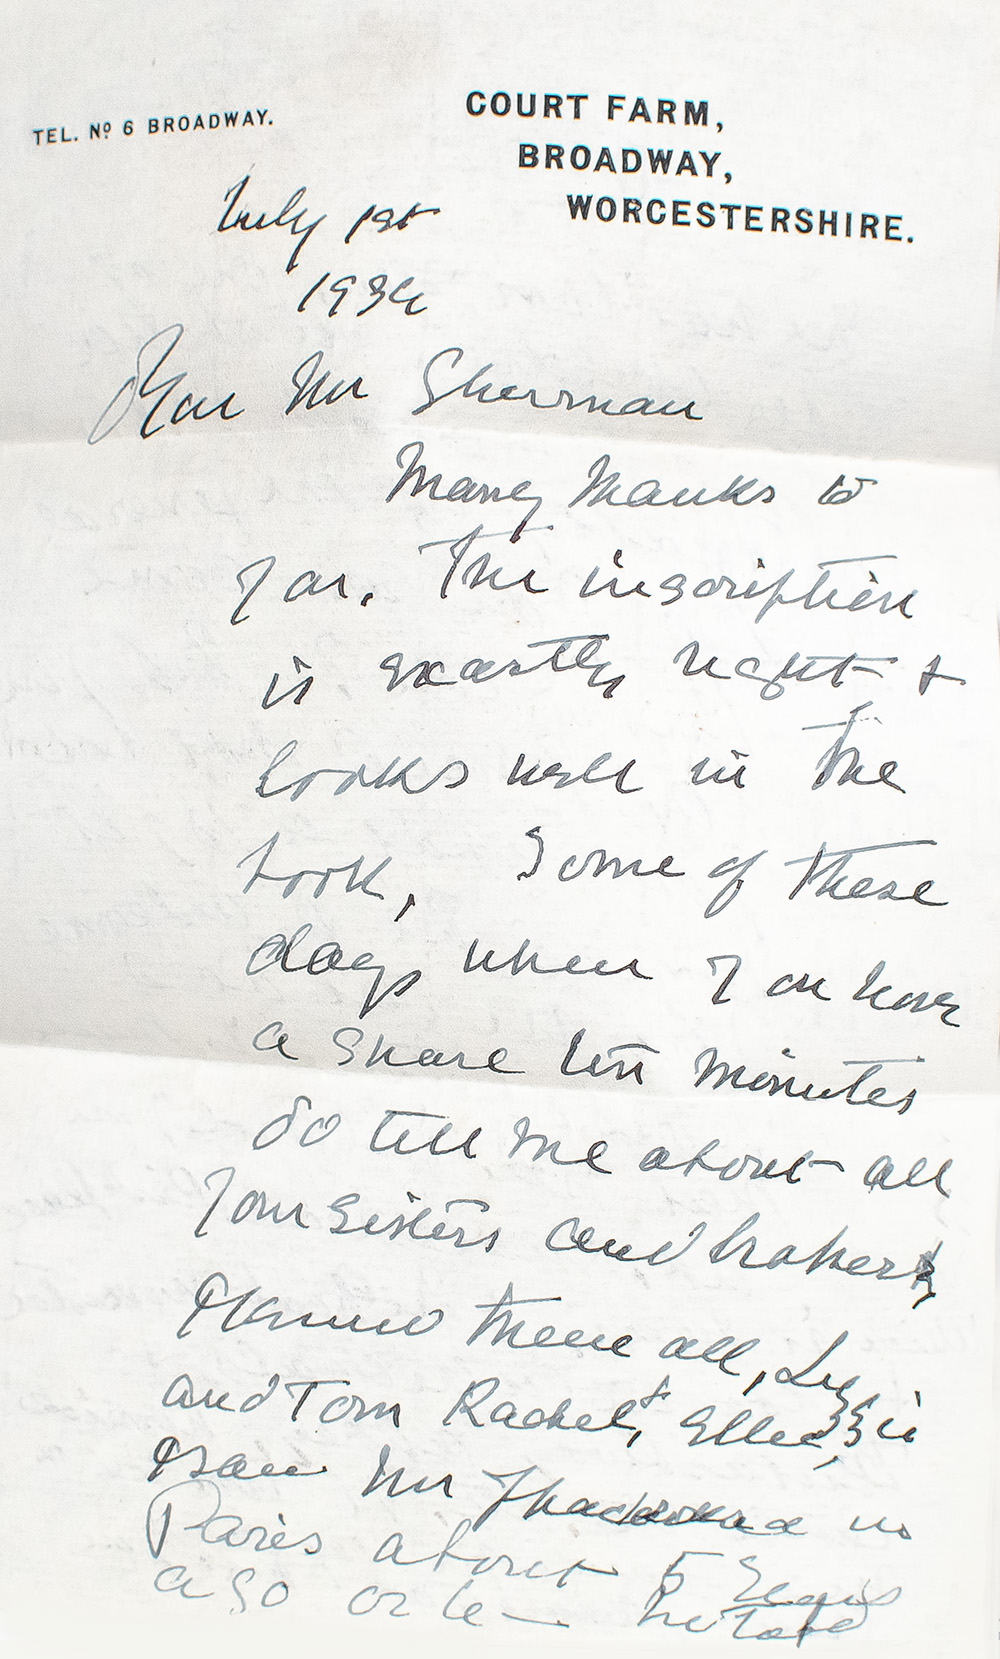 TEL. Nº 6 BROADWAY.
COURT FARM,
BROADWAY,
WORCESTERSHIRE.
July 1st
1934
Dear Mr Sherman
Many thanks to
you. The inscription
is exactly right &
looks well in the
book, Some of these
days when you have
a spare ten minutes
do tell me about all
your sisters and brothers,
them all, Lizzie
and Tom Rachel, & Ellie,
I saw Mr in
Paris about 5 years
ago or 6 — he